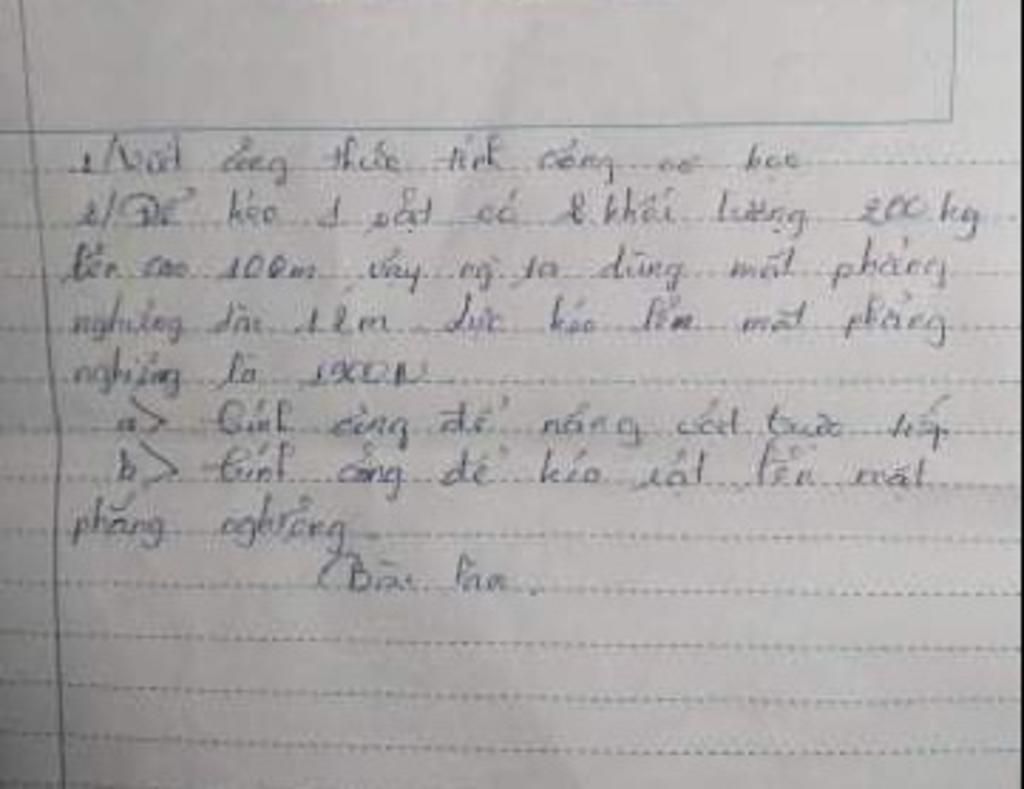 1/Viết công thức tính công cơ học
2/Để kéo 1 vật có khối lượng 200kg
lên cao 100m vậy ng ta dùng mặt phẳng
nghiêng dài 12m lực kéo lên mặt phẳng
nghiêng là 1900N
a> tính công để nâng vật trực tiếp
b> tính công để kéo vật lên mặt
phẳng nghiêng
Bài làm